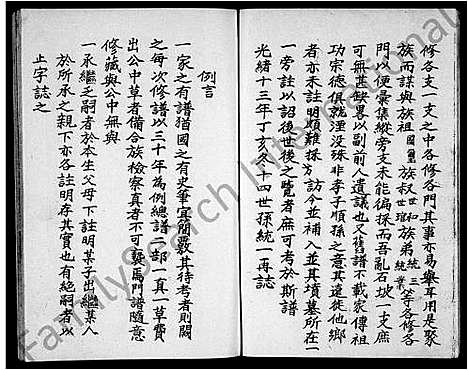 修各支一支之中各修各門其事亦易舉耳用是聚
族而謀與族祖國璽族叔世和世雍族弟統三統業等各修各
門以便彙集縱旁支未能徧採而吾亂石坡一支庶
可無甚缺畧以副前人遺議也又舊譜不載家傳祖
功宗德俱就湮没殊非孝子順孫之意其遠徙他鄉
者亦未註明頗難採訪今並補入並其墳墓所在一
一旁註以詔後世後之覽者庶可考於斯譜
光緒十三年丁亥冬十四世孫統一再誌
例言
一家之有譜猶國之有史筆宜簡覈其待考者則闕
之每次修譜以三十年為例總譜二部一真一草費
出公中草者備合族檢察真者不可輕馬門譜隨意
修藏與公中無與
一承繼乏嗣者於本生父母下註明某子出繼某人
於所承之親下亦各註明存其實也有絕嗣者以
止字誌之
FamilySearch International